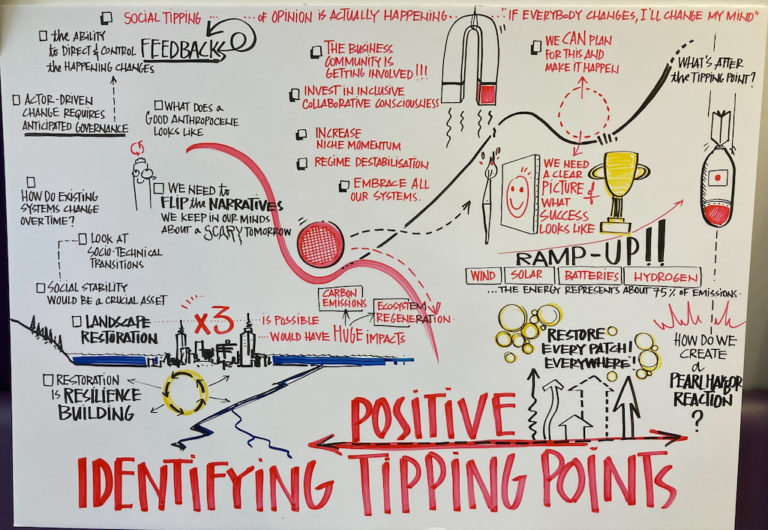 SOCIAL TIPPING ...... of OPINION is ACTUALLY HAPPENING ...... "IF EVERYBODY CHANGES, I'LL CHANGE MY MIND"
the ABILITY
to DIRECT & CONTROL
the HAPPENING CHANGES
FEEDBACK
ACTOR-DRIVEN
CHANGE REQUIRES
ANTICIPATED GOVERNANCE
WHAT DOES a
GOOD ANTHROPOCENE
LOOKS LIKE
THE BUSINESS
COMMUNITY IS
GETTING INVOLVED!!!
INVEST IN INCLUSIVE
COLLABORATIVE CONSCIOUSNESS
INCREASE
NICHE MOMENTUM
REGIME DESTABILISATION
EMBRACE ALL
OUR SYSTEMS.
WE CAN PLAN
FOR THIS AND
MAKE IT HAPPEN
WHAT'S AFTER
the TIPPING POINT?
HOW DO EXISTING
SYSTEMS CHANGE
OVER TIME?
WE NEED to
FLIP the NARRATIVES
WE KEEP IN OUR MINDS
ABOUT a SCARY TOMORROW
LOOK AT
SOCIO-TECHNICAL
TRANSITIONS
SOCIAL STABILITY
WOULD BE a CRUCIAL ASSET
WE NEED
A CLEAR
PICTURE of
WHAT
SUCCESS
LOOKS LIKE
RAMP-UP!!
WIND SOLAR BATTERIES HYDROGEN
...THE ENERGY REPRESENTS ABOUT 75% of EMISSIONS.
LANDSCAPE
RESTORATION
x3 ... is POSSIBLE
... WOULD HAVE HUGE IMPACTS
CARBON
EMISSIONS
ECOSYSTEM
REGENERATION
RESTORATION
IS RESILIENCE
BUILDING
RESTORE
EVERY PATCH!
EVERYWHERE!
HOW DO WE
CREATE
a
PEARL HARBOR
REACTION
?
POSITIVE
IDENTIFYING TIPPING POINTS